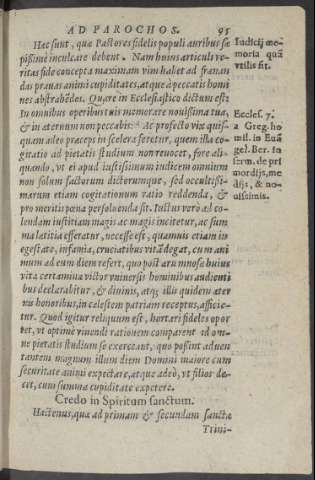 AD PAROCHOS. 95
Hæc sunt, quæ Pastores fidelis populi auribus sæ
pissimè inculcare debent. Nam huius articuli ve-
ritas fide concepta maximam vim habet ad frænan
das prauas animi cupiditates, atque à peccatis homi
nes abstrahēdos. Quare in Ecclesiastico dictum est:
In omnibus operibus tuis memorare nouissima tua,
& in æternum non peccabis: Ac profecto vix quis-
quam adeo præceps in scelera feretur, quem illa co-
gitatio ad pietatis studium non reuocet, fore ali-
quando, vt ei apud iustissimum iudicem omnium
non solum factorum dictorumque, sed occultissi-
marum etiam cogitationum ratio reddenda, &
pro meritis pœna persoluenda sit. Iustus verò ad co-
lendam iustitiam magis ac magis incitetur, ac sum
ma lætitia efferatur, necesse est, quamuis etiam in
egestate, infamia, cruciatibus vitā degat, cum ani
mum ad eum diem refert, quo post ærumnosæ huius
vitæ certamina victor vniuersis hominibus audienti
bus declarabitur, & diuinis, atq; illis quidem æter
nis honoribus, in cælestem patriam receptus, afficie-
tur. Quod igitur reliquum est, hortari fideles opor
tet, vt optimè viuendi rationem comparent ad om-
ne pietatis studium se exerceant, quo possint aduen
tantem magnum illum diem Domini maiore cum
securitate animi expectare, atque adeò, vt filios de-
cet, cum summa cupiditate expetere.
Credo in Spiritum sanctum.
Hactenus, quæ ad primam & secundam sanctæ
Trini-
Iudicij me-
moria quā
vtilis sit.
Eccles. 7.
a Greg. ho
mil. in Euā
gel. Ber. in
serm. de pri
mordijs, me
dijs, & no-
uissimis.